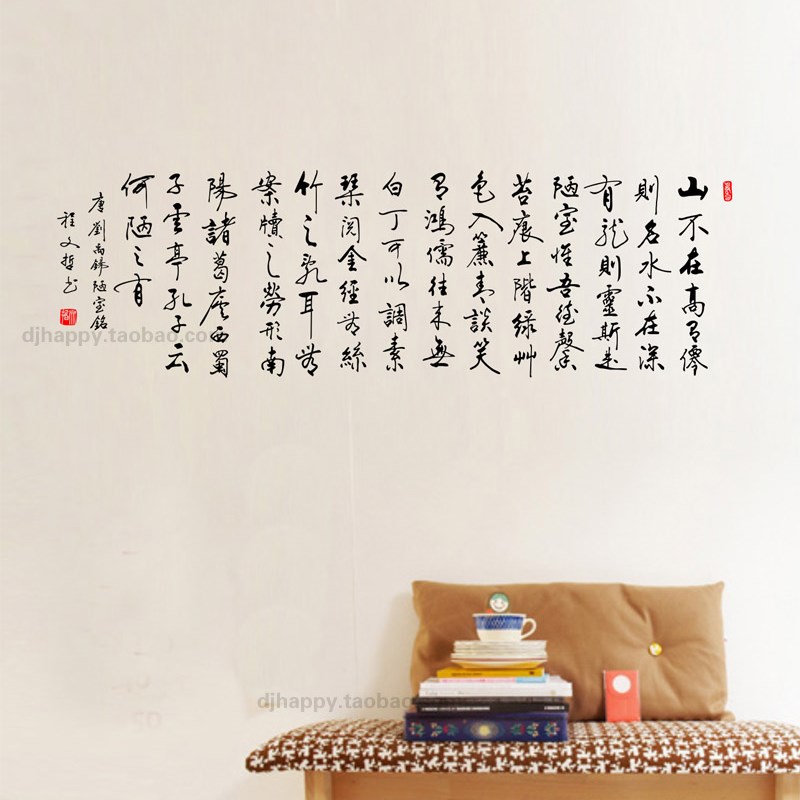 山不在高有僊
則名水不在深
有龍則靈斯是
陋室惟吾德馨
苔痕上階緑艸
色入簾青談笑
有鴻儒往来無
白丁可以調素
琴閲金經無絲
竹之亂耳無
案牘之勞形南
陽諸葛廬西蜀
子雲亭孔子云
何陋之有
唐劉禹錫陋室銘
程文哲书
djhappy.taobao.co
djhappy.taobao